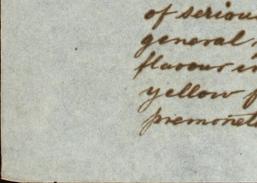 of seriou
general
flavour i
yellow f
premonet